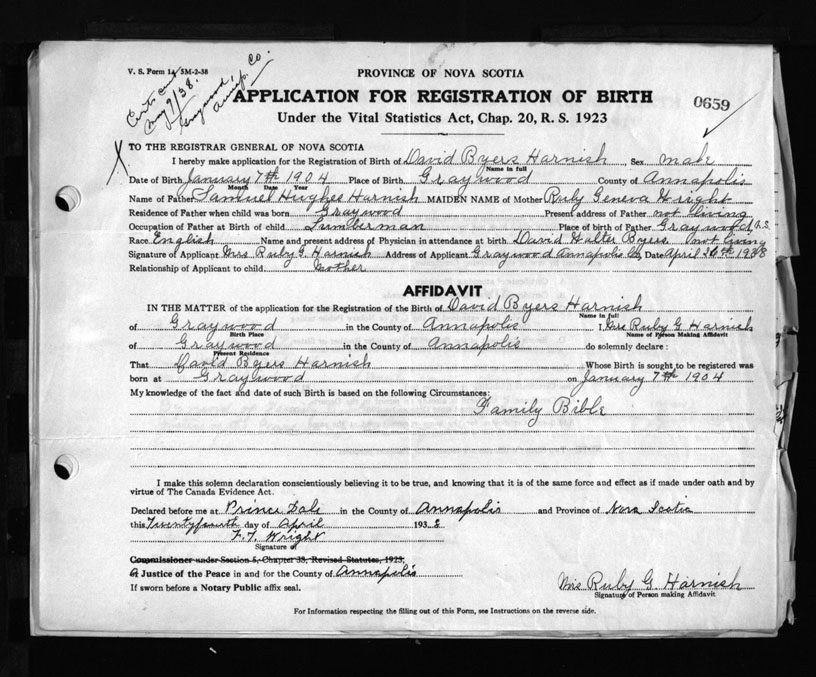 V. S. Form 1A 5M-2-38
Certs and
May 9/38.
Graywood,
Annap. Co.
PROVINCE OF NOVA SCOTIA
APPLICATION FOR REGISTRATION OF BIRTH
0659
Under the Vital Statistics Act, Chap. 20, R. S. 1923
TO THE REGISTRAR GENERAL OF NOVA SCOTIA
I hereby make application for the Registration of Birth of David Byers Harnish, Sex male
Name in full
Date of Birth January 7th 1904 Place of Birth Graywood County of Annapolis
Month Date Year
Name of Father Samuel Hughes Harnish MAIDEN NAME of Mother Ruby Geneva Wright
Residence of Father when child was born Graywood Present address of Father not living
Occupation of Father at Birth of child Lumberman Place of birth of Father Graywood N.S.
Race English Name and present address of Physician in attendance at birth David Walter Byers. (not living
Signature of Applicant Mrs Ruby G. Harnish Address of Applicant Graywood Annapolis Co Date April 1938
Relationship of Applicant to child Mother
AFFIDAVIT
IN THE MATTER of the application for the Registration of the Birth of David Byers Harnish
Name in full
of Graywood in the County of Annapolis I, Mrs Ruby G Harnish
Birth Place Name of Person Making Affidavit
of Graywood in the County of Annapolis do solemnly declare :
Present Residence
That David Byers Harnish Whose Birth is sought to be registered was
born at Graywood on January 7th 1904
My knowledge of the fact and date of such Birth is based on the following Circumstances:
Family Bible
I make this solemn declaration conscientiously believing it to be true, and knowing that it is of the same force and effect as if made under oath and by
virtue of The Canada Evidence Act.
Declared before me at Prince Dale in the County of Annapolis and Province of Nova Scotia
this Twentyfourth day of April 1938
F. T. Wright
Signature of
Commissioner under Section 5, Chapter 38, Revised Statutes, 1923,
A Justice of the Peace in and for the County of Annapolis
If sworn before a Notary Public affix seal.
Mrs Ruby G. Harnish
Signature of Person making Affidavit
For Information respecting the filling out of this Form, see Instructions on the reverse side.